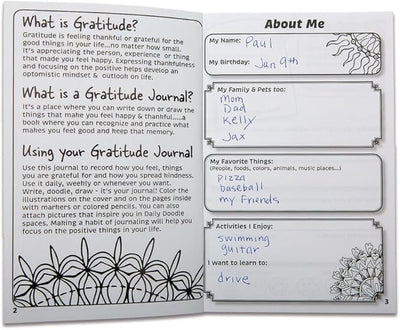 What is Gratitude?
Gratitude is feeling thankful or grateful for the
good things in your life...no matter how small.
It's appreciating the person, experience or thing
that made you feel happy. Expressing thankfulness
and focusing on the positive helps develop an
optomistic mindset & outlook on life.
What is a Gratitude Journal?
It's a place where you can write down or draw the
things that make you feel happy & thankful.....a
book where you can recognize and practice what
makes you feel good and keep that memory.
Using your Gratitude Journal
Use this journal to record how you feel, things
you are grateful for and how you spread kindness.
Use it daily, weekly or whenever you want.
Write, doodle, draw - it's your journal! Color the
illustrations on the cover and on the pages inside
with markers or colored pencils. You can also
attach pictures that inspire you in Daily Doodle
spaces. Making a habit of journaling will help you
focus on the positive things in your life.
2
About Me
My Name: Paul
My Birthday: Jan 9th
My Family & Pets too:
Mom
Dad
Kelly
Jax
My Favorite Things:
(People, foods, colors, animals, music places...)
pizza
baseball
my friends
Activities I Enjoy:
swimming
guitar
I want to learn to:
drive
3